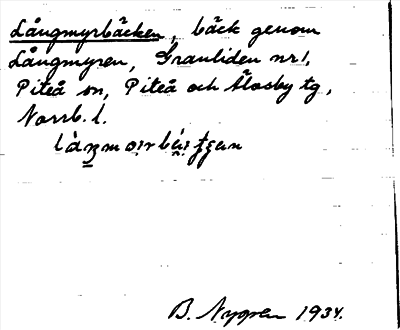 Långmyrbäcken, bäck genom
Långmyren, Granliden nr 1,
Piteå sn, Piteå och Älvsby tg,
Norrb. l.
B. Nygren 1934.